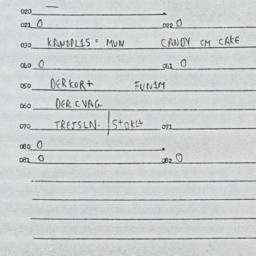 020 —
021 0 022 0
030 KANOPLIS = MUN CANDY CM CAKE
040 0 041 0
050 DERKOR+ FUNIM
060 DER CVAG
070 TREJSLN. 071
080 0
081 0 082 0